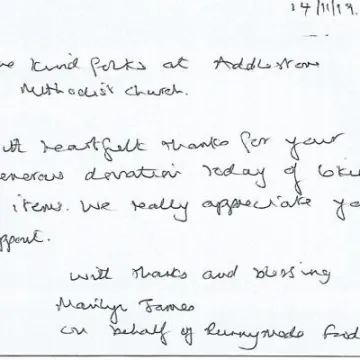 14/11/19.
kind folks at Addlestone
Methodist Church.
heartfelt thanks for your
enerous donation today of 6ki
items. We really appreciate yo
pport.
With thanks and blessing
Marilyn James
on behalf of Runnymede Food